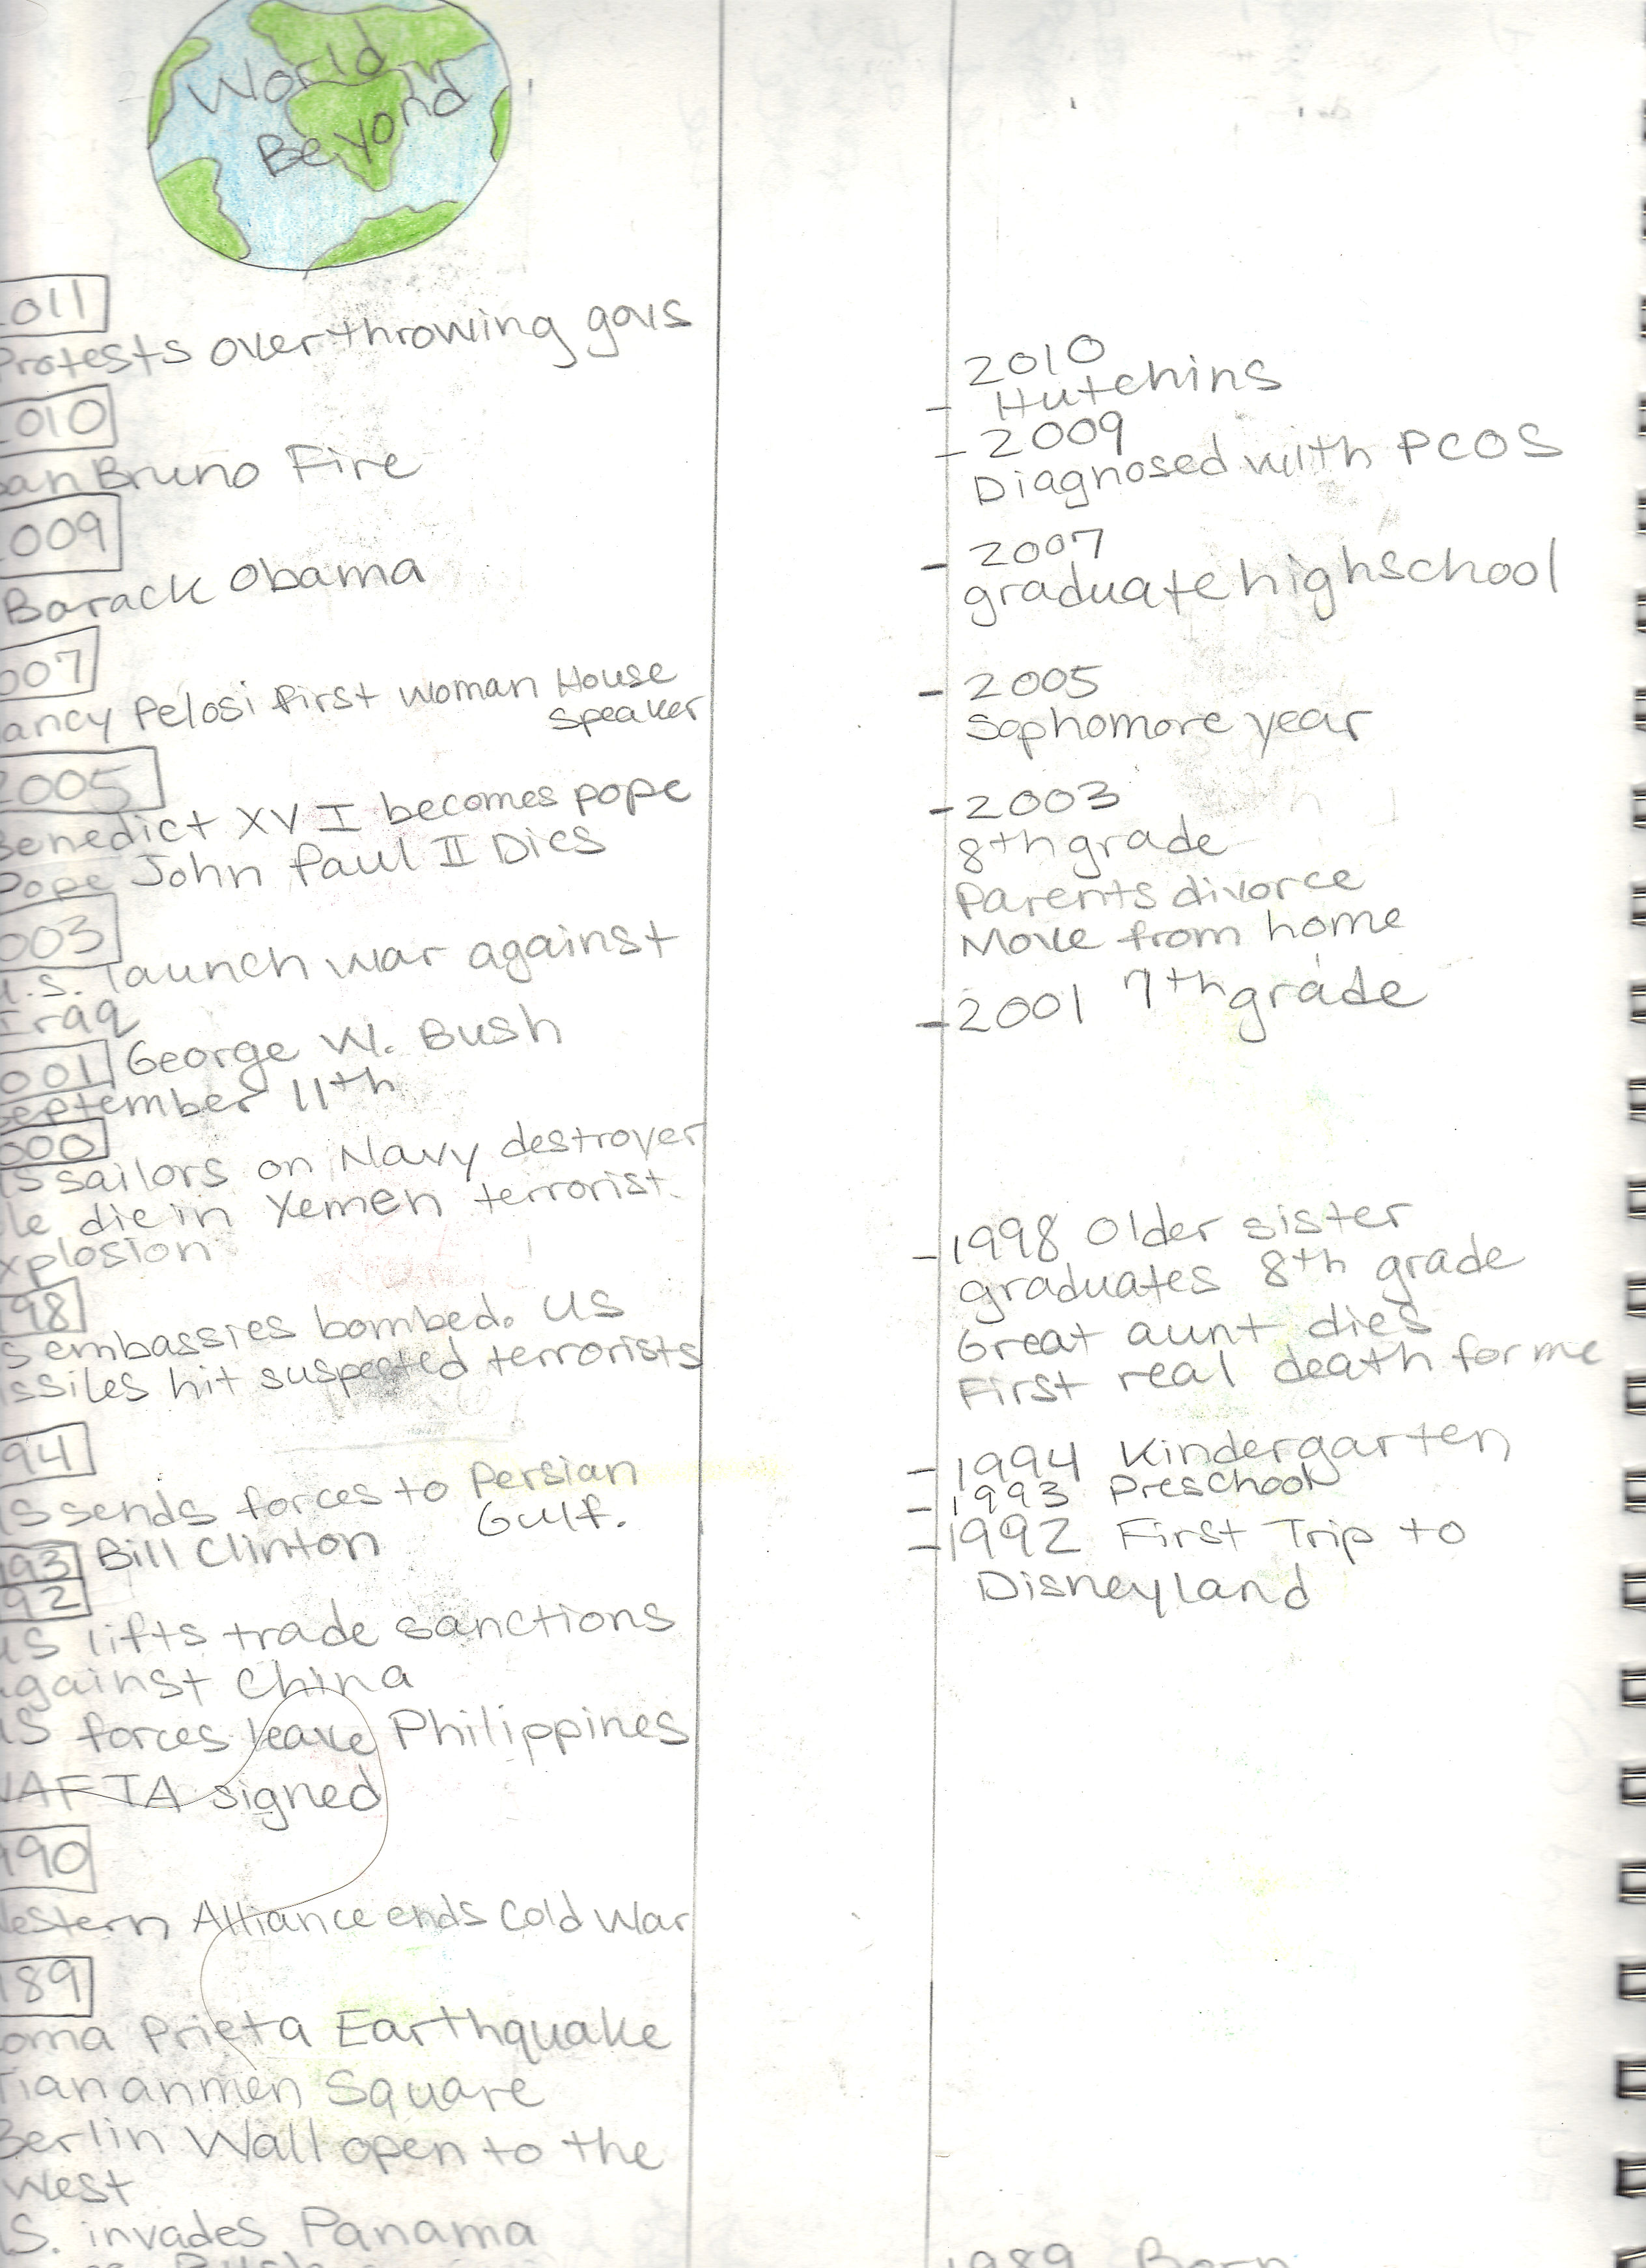 World
Beyond
011
Protests overthrowing govs
010
San Bruno Fire
009
Barack Obama
007
ancy Pelosi first woman House
speaker
2005
Benedict XVI becomes pope
Pope John Paul II Dies
003
U.S. launch war against
Iraq
001 George W. Bush
September 11th
000
US sailors on Navy destroyer
le die in Yemen terrorist
xplosion
98
S embassies bombed. US
issiles hit suspected terrorists
94
US sends forces to Persian
Gulf.
93 Bill Clinton
92
US lifts trade sanctions
against China
US forces leave Philippines
NAFTA signed
990
Western Alliance ends Cold War
989
oma Prieta Earthquake
Tiananmen Square
Berlin Wall open to the
West
.S. invades Panama
2010
Hutchins
2009
Diagnosed with PCOS
2007
graduate highschool
2005
Sophomore year
2003
8th grade
Parents divorce
Move from home
2001 7th grade
1998 Older sister
graduates 8th grade
Great aunt dies
First real death for me
1994 Kindergarten
1993 Preschool
1992 First Trip to
Disneyland
1989 Born